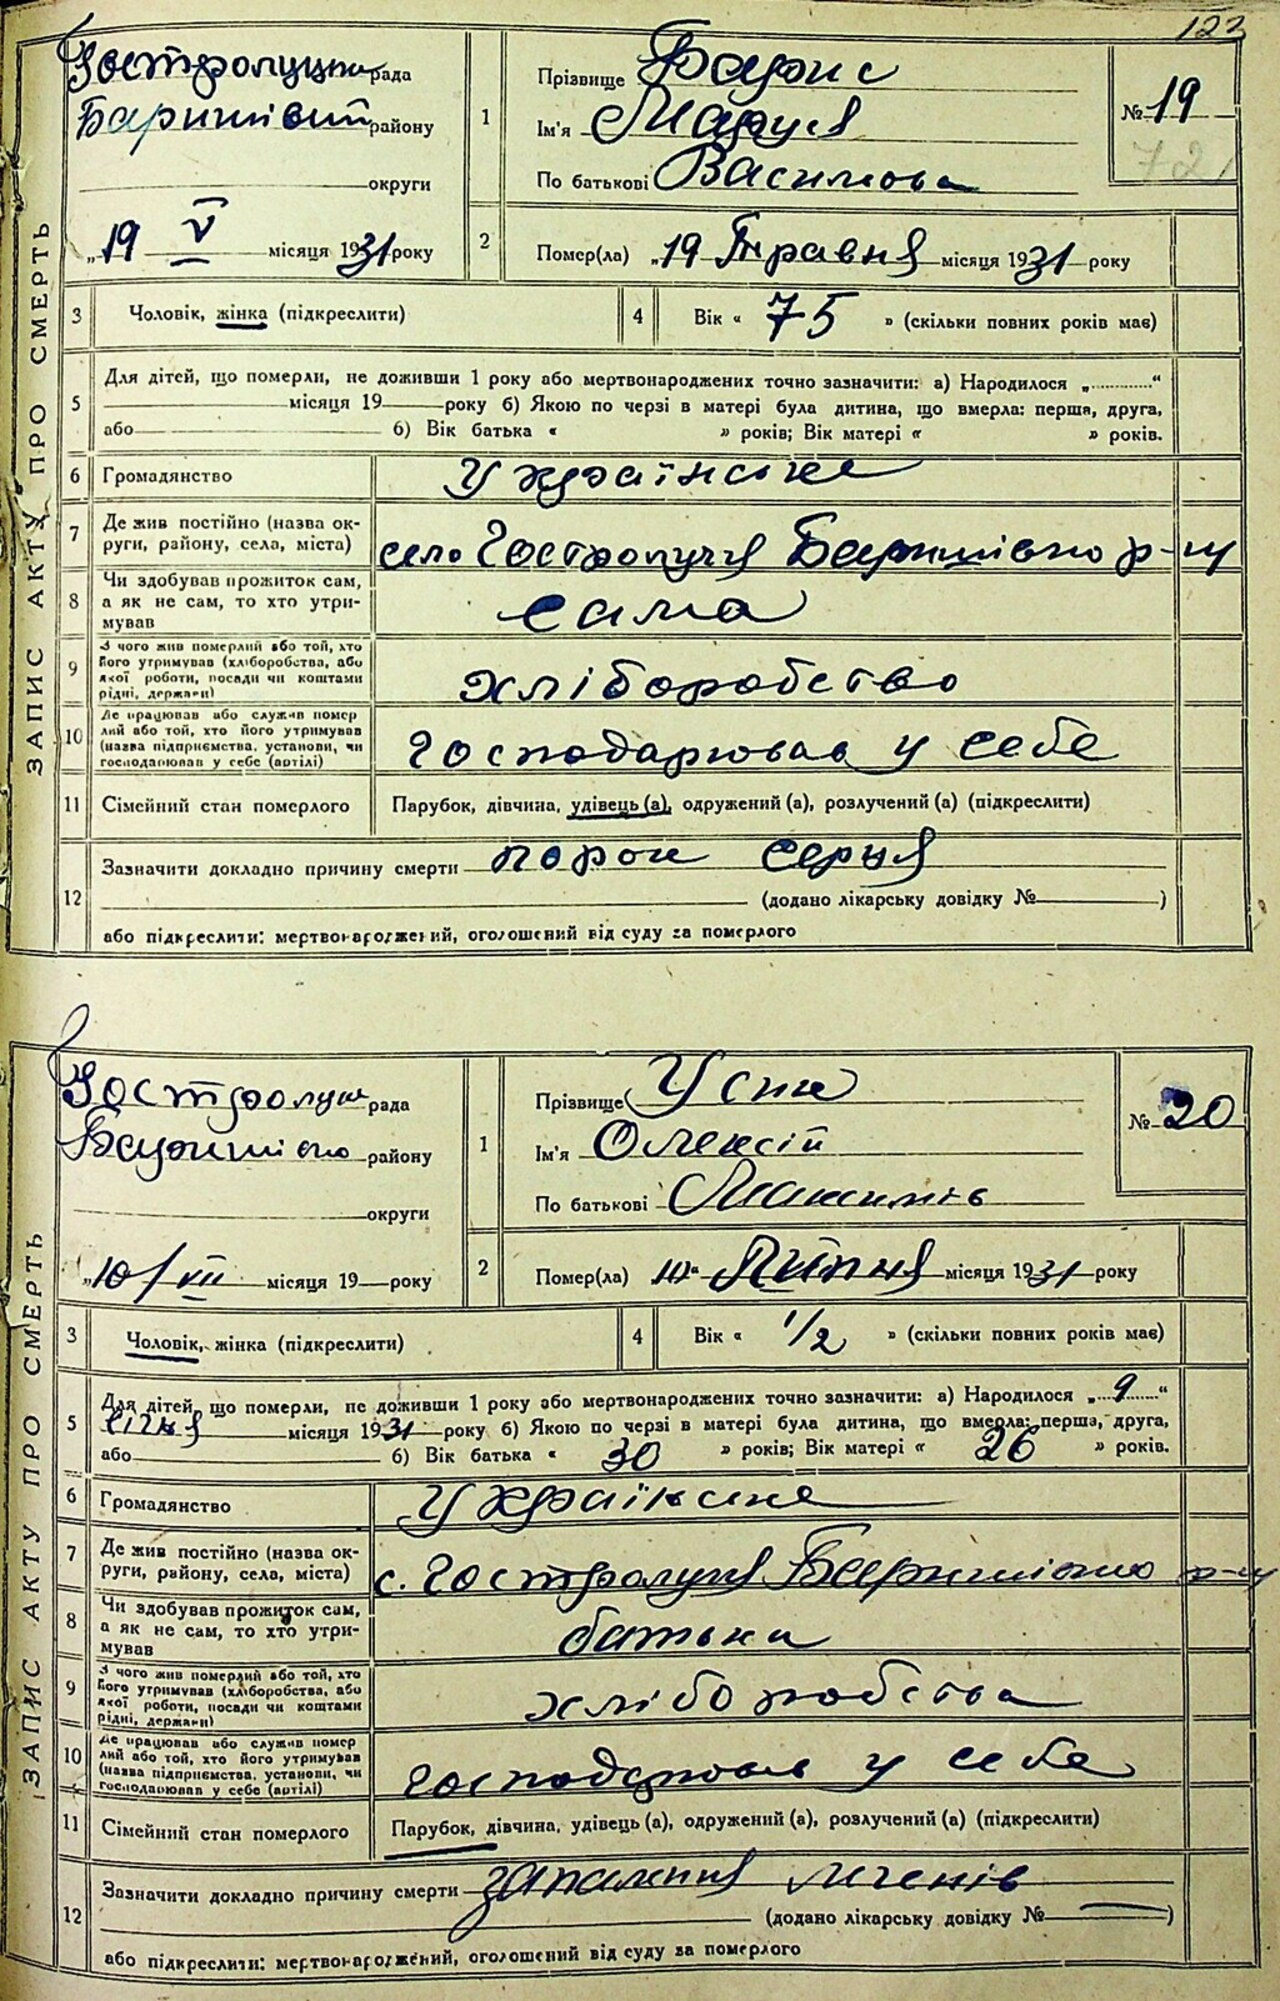 123
Гостролуцька рада
Баришівський району
округи
„19 V місяця 1931 року
ЗАПИС АКТУ ПРО СМЕРТЬ
1
Прізвище
Ім'я Маруся
По батькові Василова
№ 19
72
2
Помер(ла) „19 Травня місяця 1931 року
3 Чоловік, жінка (підкреслити)
4 Вік « 75 » (скільки повних років має)
5 Для дітей, що померли, не доживши 1 року або мертвонароджених точно зазначити: а) Народилося „............“
місяця 19 року б) Якою по черзі в матері була дитина, що вмерла: перша, друга,
або б) Вік батька « » років; Вік матері « » років.
6 Громадянство Українське
7 Де жив постійно (назва ок-
руги, району, села, міста) село Гостролуччя Баришівсько р-ну
8 Чи здобував прожиток сам,
а як не сам, то хто утри-
мував сама
9 З чого жив померлий або той, хто
його утримував (хліборобства, або
якої роботи, посади чи коштами
рідні, держави) хліборобство
10 Де працював або служив помер
лий або той, хто його утримував
(назва підприємства, установи, чи
господарював у себе (артілі) господарював у себе
11 Сімейний стан померлого Парубок, дівчина, удівець (а), одружений (а), розлучений (а) (підкреслити)
12 Зазначити докладно причину смерти порок серця
(додано лікарську довідку № )
або підкреслити: мертвонароджений, оголошений від суду за померлого
Гостролуцьк рада
Баришівсько району
округи
„10/VII місяця 19 року
ЗАПИС АКТУ ПРО СМЕРТЬ
1
Прізвище Усик
Ім'я Олексій
По батькові Максимів
№ 20
2
Помер(ла) 10“ Липня місяця 1931 року
3 Чоловік, жінка (підкреслити)
4 Вік « 1/2 » (скільки повних років має)
5 Для дітей, що померли, не доживши 1 року або мертвонароджених точно зазначити: а) Народилося „ 9 “
січня місяця 1931 року б) Якою по черзі в матері була дитина, що вмерла: перша, друга,
або б) Вік батька « 30 » років; Вік матері « 26 » років.
6 Громадянство Українське
7 Де жив постійно (назва ок-
руги, району, села, міста) с. Гостролуччя Баришівсько р-ну
8 Чи здобував прожиток сам,
а як не сам, то хто утри-
мував батьки
9 З чого жив померлий або той, хто
його утримував (хліборобства, або
якої роботи, посади чи коштами
рідні, держави) хліборобства
10 Де працював або служив помер
лий або той, хто його утримував
(назва підприємства, установи, чи
господарював у себе (артілі) господарював у себе
11 Сімейний стан померлого Парубок, дівчина, удівець (а), одружений (а), розлучений (а) (підкреслити)
12 Зазначити докладно причину смерти запалення легенів
(додано лікарську довідку № )
або підкреслити: мертвонароджений, оголошений від суду за померлого